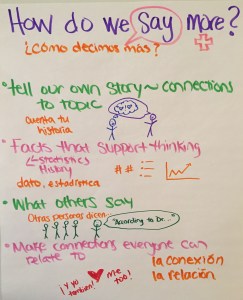 How do we Say More?
¿cómo decimos más?
• tell our own story ~ connections
to topic
cuenta tu
historia
• Facts that support thinking
↳ statistics
History
##
dato, estadística
• What others say
Otras personas dicen...
"According to Dr..."
• Make connections everyone can
relate to
la conexión
la relación
¡Y yo
también!
me
too!